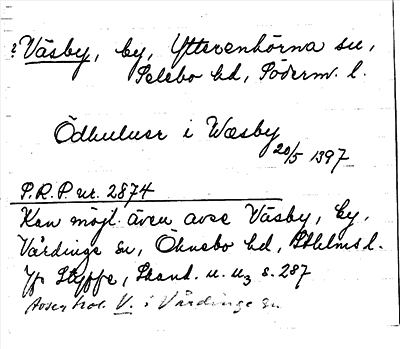 ? Väsby, by, Ytterenhörna sn,
Selebo hd, Söderm. l.
Ödhulus i Wæsby
20/5 1397
P.R.P. nr. 2874
Kan möjl. även avse Väsby, by,
Vårdinge sn, Öknebo hd, Sthlms l.
Jfr Styffe, Skand. u. u3 s. 287
V. i Vårdinge sn